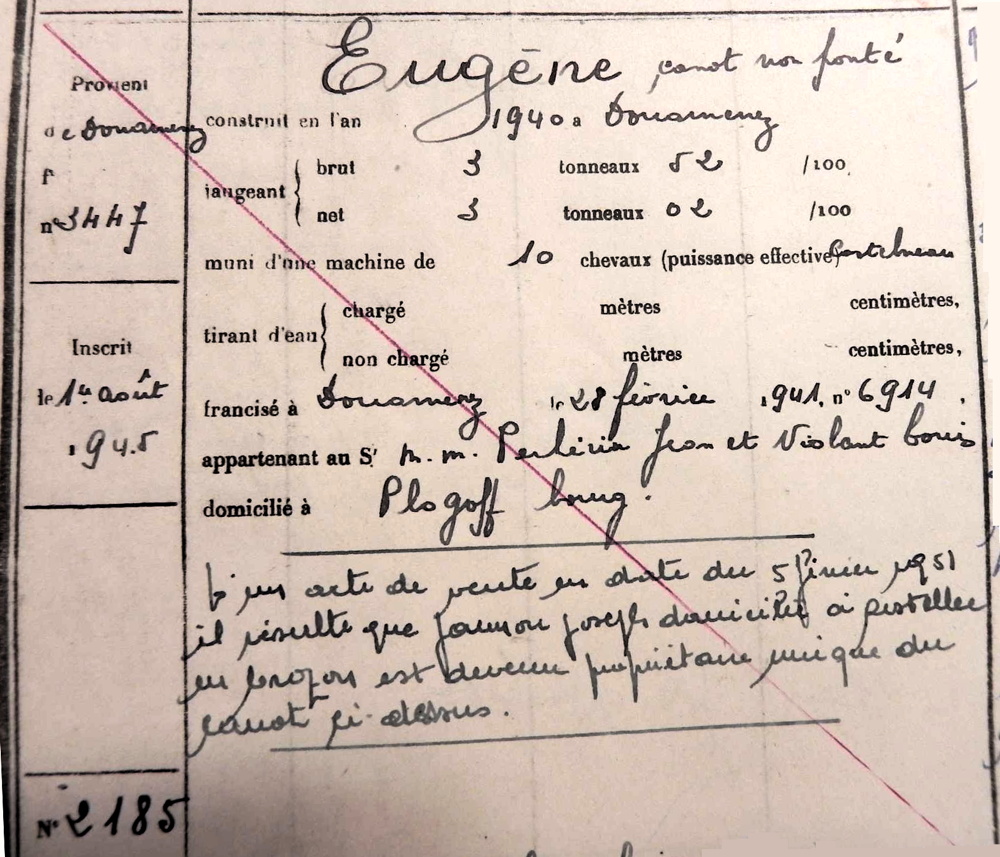 Eugène canot non ponté
Provient
de Douarnenez
f°
n° 3447
construit en l'an 1940 a Douarnenez
jaugeant
brut 3 tonneaux 52 /100
net 3 tonneaux 02 /100
muni d'une machine de 10 chevaux (puissance effective)
tirant d'eau
chargé mètres centimètres,
non chargé mètres centimètres,
Inscrit
le 1er août
1945
francisé à Douarnenez le 28 février 1941, n° 6914.
appartenant au Sr M.M. Jean et Violant
domicilié à Plogoff bourg.
D'un acte de vente en date du 5 février 1951
il résulte que joseph domicilié à
en Crozon est devenu propriétaire unique du
canot ci-dessus.
N° 2185